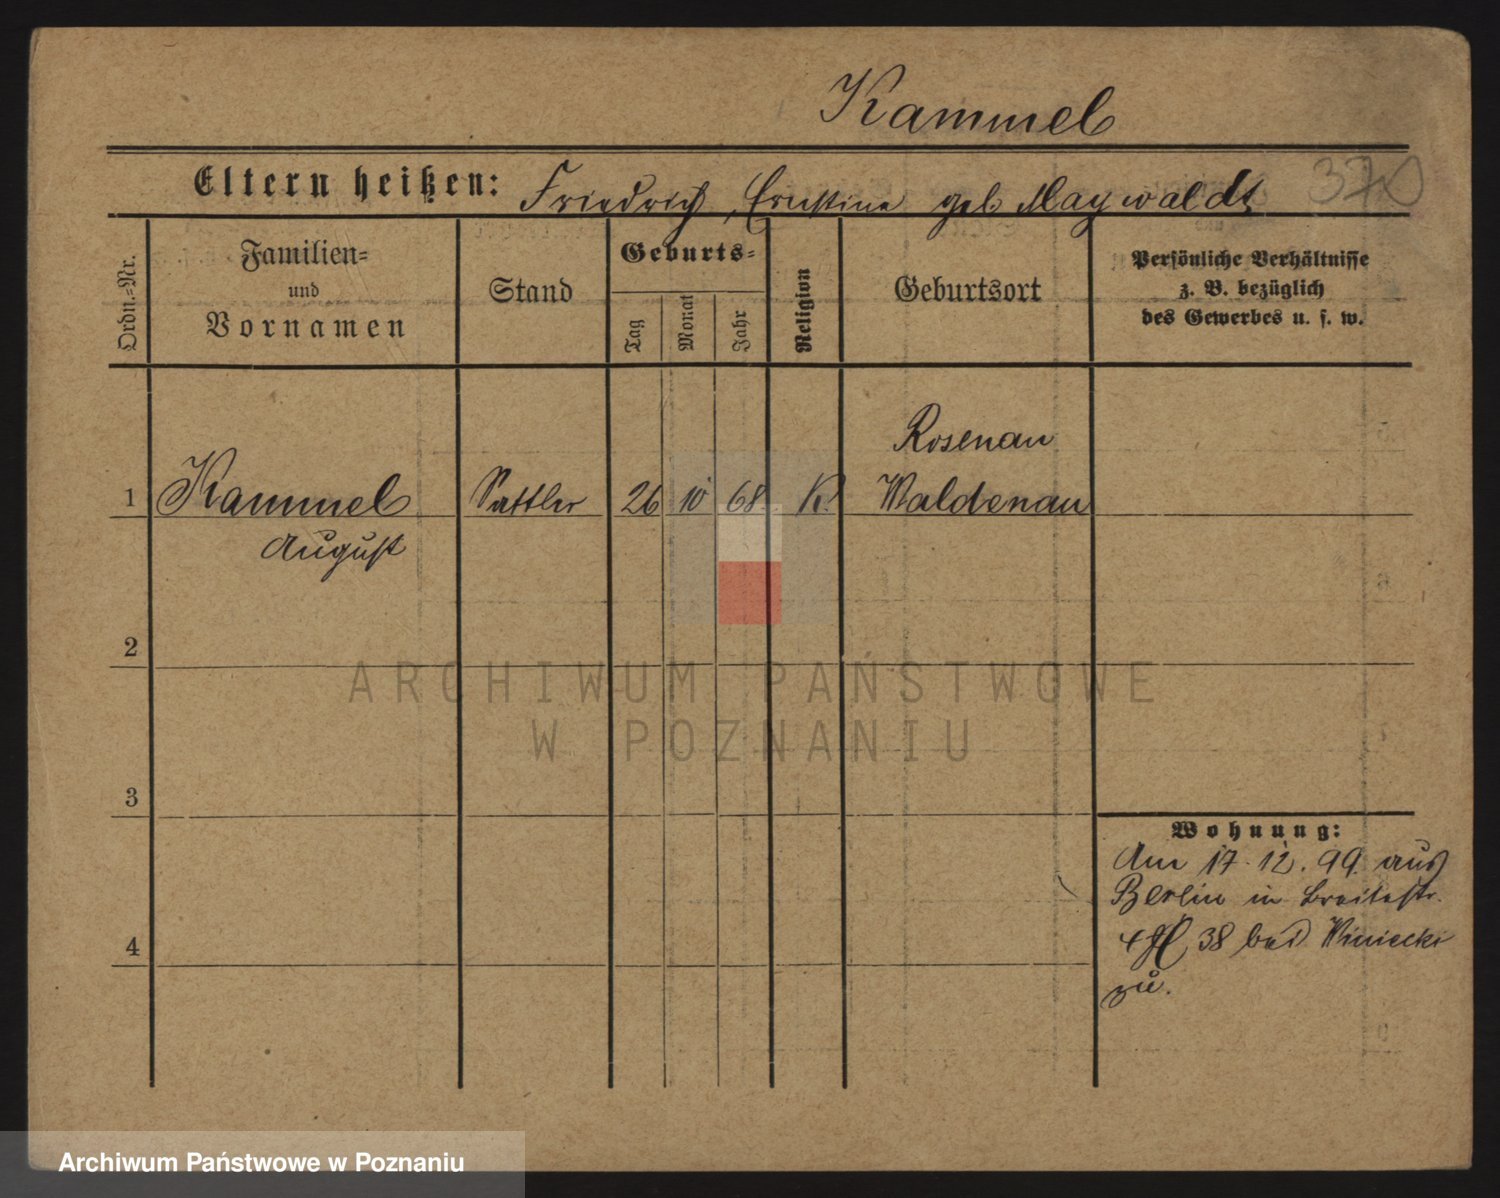 Kammel
Eltern heißen: Friedrich, Ernstine geb. Maywaldt
370
Ordn.-Nr.
Familien-
und
Vornamen
Stand
Geburts-
Tag
Monat
Jahr
Religion
Geburtsort
Persönliche Verhältnisse
z. B. bezüglich
des Gewerbes u. s. w.
Rosenau
1 Kammel Sattler 26 10 68. K. Waldenau
August
2
3
4
Wohnung:
Am 17. 12. 99 aus
Berlin in Breitestr.
38 bei Winiecki
zu.
ARCHIWUM PAŃSTWOWE
W POZNANIU
Archiwum Państwowe w Poznaniu